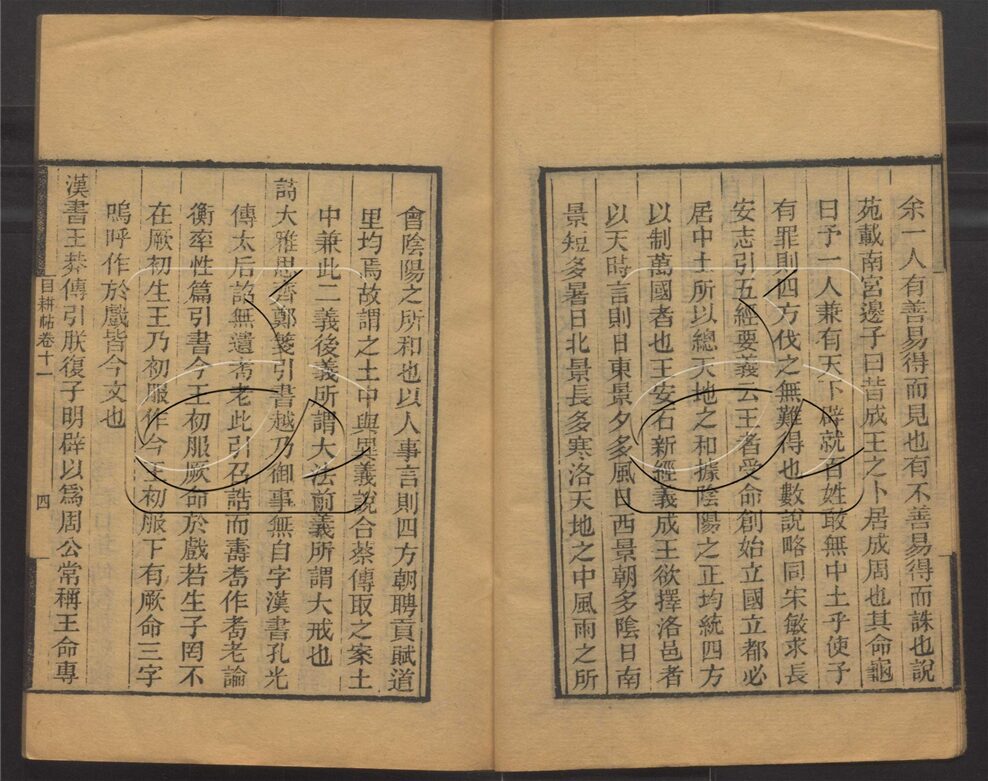 余一人有善易得而見也有不善易得而誅也說
苑載南宮邊子曰昔成王之卜居成周也其命龜
曰予一人兼有天下辟就百姓敢無中土乎使予
有罪則四方伐之無難得也數說略同宋敏求長
安志引五經要義云王者受命創始立國立都必
居中土所以總天地之和據陰陽之正均統四方
以制萬國者也王安石新經義成王欲擇洛邑者
以天時言則日東景夕多風日西景朝多陰日南
景短多暑日北景長多寒洛天地之中風雨之所
會陰陽之所和也以人事言則四方朝聘貢賦道
里均焉故謂之土中與異義說合蔡傳取之案土
中兼此二義後義所謂大法前義所謂大戒也
詩大雅思齊鄭箋引書越乃御事無自字漢書孔光
傳太后詔無遺耇老此引召誥而壽耇作耇老論
衡率性篇引書今王初服厥命於戲若生子罔不
在厥初生王乃初服作今王初服下有厥命三字
嗚呼作於戲皆今文也
漢書王莽傳引朕復子明辟以爲周公常稱王命專
目耕帖卷十一
四